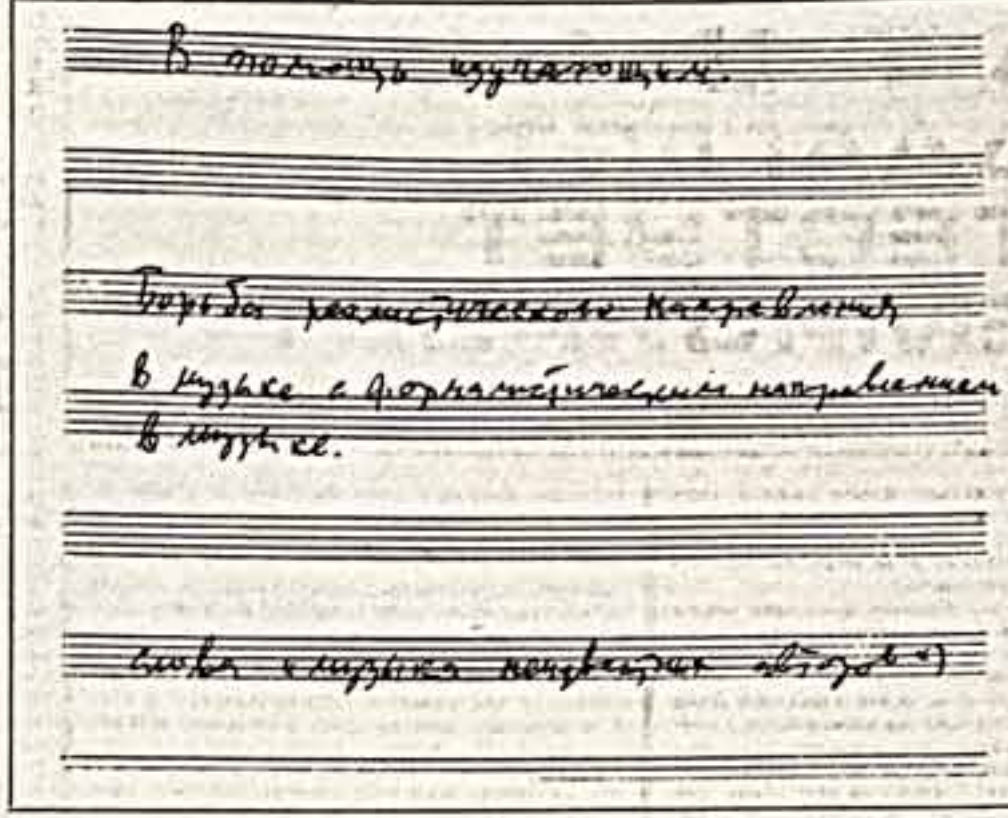 В помощь изучающим.
Борьба реалистического направления
в музыке с формалистическим направлением
в музыке.
слова и музыка неизвестных авторов *)